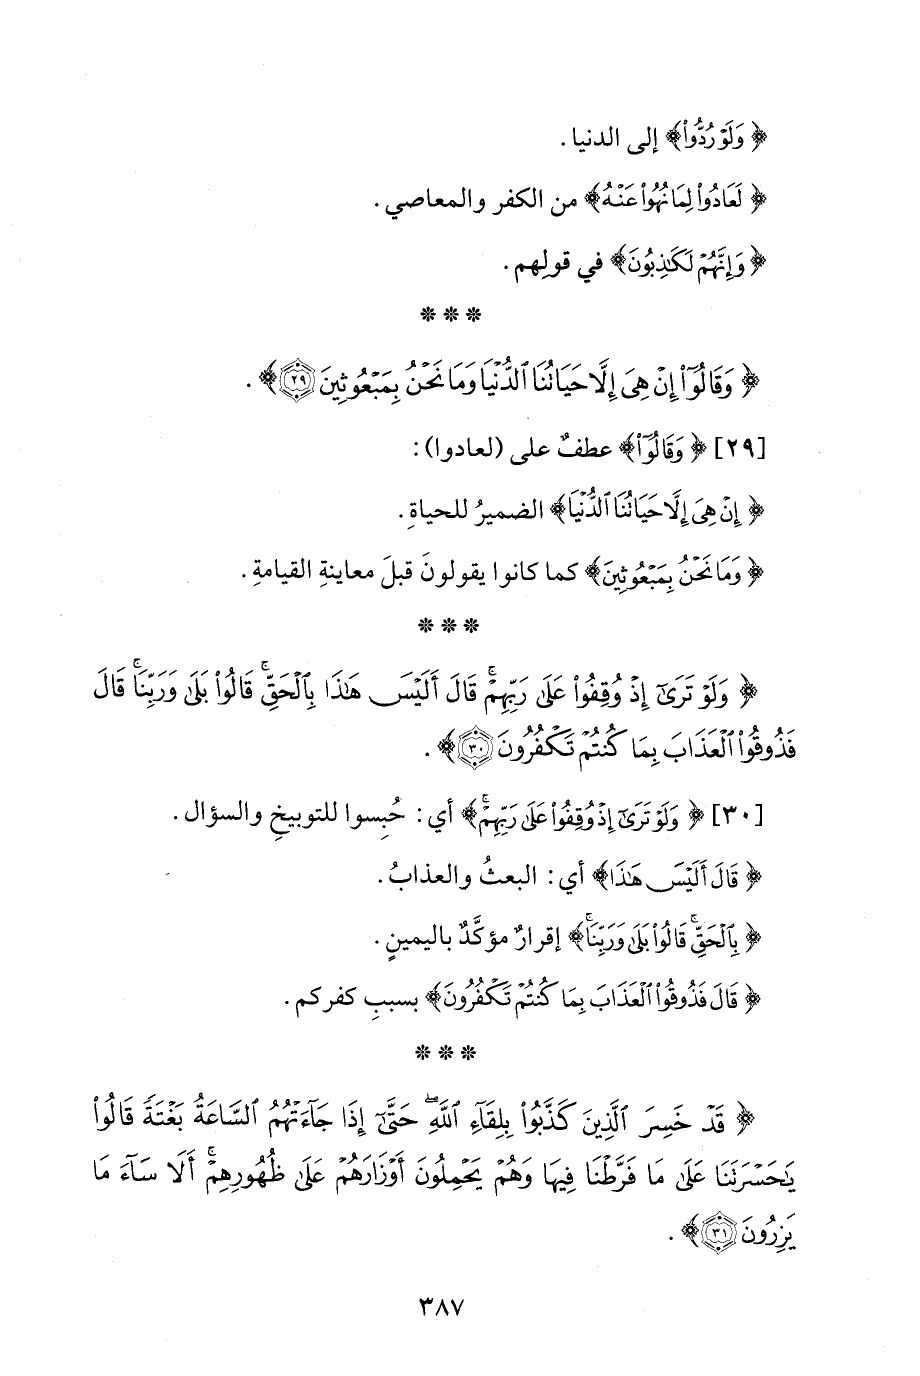 ﴿ وَلَوْ رُدُّوا۟﴾ إلى الدنيا .
﴿ لَعَادُوا۟ لِمَا نُهُوا۟ عَنْهُ﴾ من الكفر والمعاصي .
﴿ وَإِنَّهُمْ لَكَٰذِبُونَ﴾ في قولِهم .
* * *
﴿ وَقَالُوٓا۟ إِنْ هِىَ إِلَّا حَيَاتُنَا ٱلدُّنْيَا وَمَا نَحْنُ بِمَبْعُوثِينَ ٢٩﴾ .
[٢٩] ﴿ وَقَالُوٓا۟﴾ عطفٌ على (لعادوا) :
﴿ إِنْ هِىَ إِلَّا حَيَاتُنَا ٱلدُّنْيَا﴾ الضميرُ للحياةِ .
﴿ وَمَا نَحْنُ بِمَبْعُوثِينَ﴾ كما كانوا يقولونَ قبلَ معاينةِ القيامةِ .
* * *
﴿ وَلَوْ تَرَىٰٓ إِذْ وُقِفُوا۟ عَلَىٰ رَبِّهِمْ ۚ قَالَ أَلَيْسَ هَٰذَا بِٱلْحَقِّ ۚ قَالُوا۟ بَلَىٰ وَرَبِّنَا ۚ قَالَ
فَذُوقُوا۟ ٱلْعَذَابَ بِمَا كُنتُمْ تَكْفُرُونَ ٣٠﴾ .
[٣٠] ﴿ وَلَوْ تَرَىٰٓ إِذْ وُقِفُوا۟ عَلَىٰ رَبِّهِمْ ۚ﴾ أي : حُبِسوا للتوبيخِ والسؤال .
﴿ قَالَ أَلَيْسَ هَٰذَا﴾ أي : البعثُ والعذابُ .
﴿ بِٱلْحَقِّ ۚ قَالُوا۟ بَلَىٰ وَرَبِّنَا ۚ﴾ إقرارٌ مؤكَّدٌ باليمينِ .
﴿ قَالَ فَذُوقُوا۟ ٱلْعَذَابَ بِمَا كُنتُمْ تَكْفُرُونَ﴾ بسببِ كفركم .
* * *
﴿ قَدْ خَسِرَ ٱلَّذِينَ كَذَّبُوا۟ بِلِقَآءِ ٱللَّهِ ۖ حَتَّىٰٓ إِذَا جَآءَتْهُمُ ٱلسَّاعَةُ بَغْتَةً قَالُوا۟
يَٰحَسْرَتَنَا عَلَىٰ مَا فَرَّطْنَا فِيهَا وَهُمْ يَحْمِلُونَ أَوْزَارَهُمْ عَلَىٰ ظُهُورِهِمْ ۚ أَلَا سَآءَ مَا
يَزِرُونَ ٣١﴾ .
٣٨٧